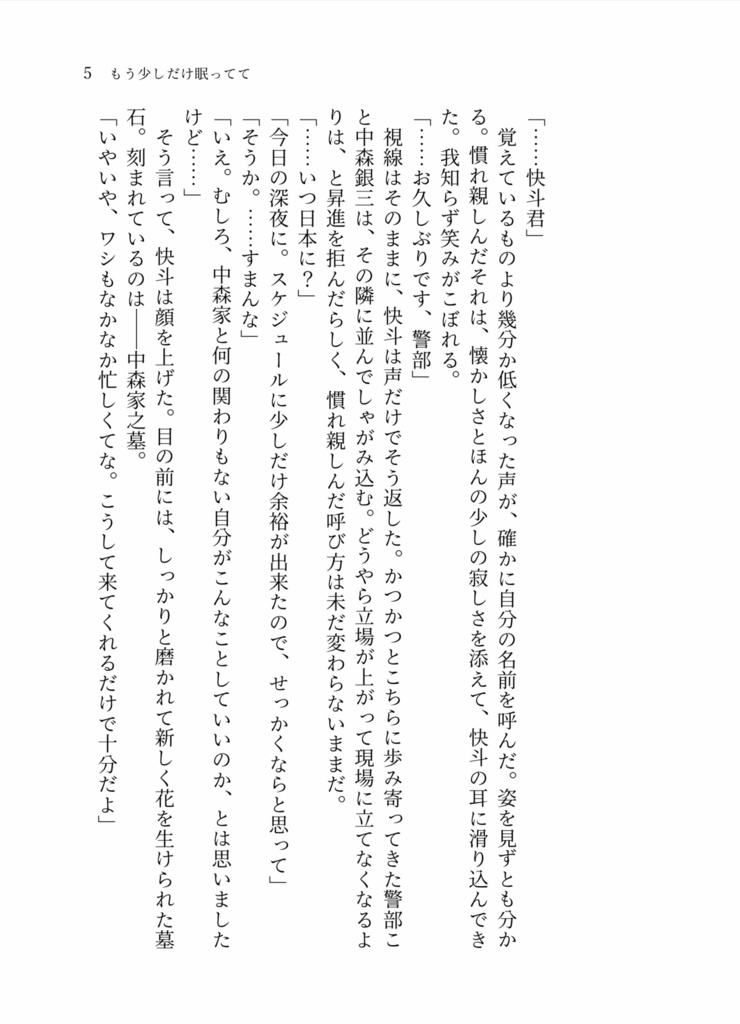 5 もう少しだけ眠ってて
「……快斗君」
　覚えているものより幾分か低くなった声が、確かに自分の名前を呼んだ。姿を見ずとも分か
る。慣れ親しんだそれは、懐かしさとほんの少しの寂しさを添えて、快斗の耳に滑り込んでき
た。我知らず笑みがこぼれる。
「……お久しぶりです、警部」
　視線はそのままに、快斗は声だけでそう返した。かつかつとこちらに歩み寄ってきた警部こ
と中森銀三は、その隣に並んでしゃがみ込む。どうやら立場が上がって現場に立てなくなるよ
りは、と昇進を拒んだらしく、慣れ親しんだ呼び方は未だ変わらないままだ。
「……いつ日本に？」
「今日の深夜に。スケジュールに少しだけ余裕が出来たので、せっかくならと思って」
「そうか。……すまんな」
「いえ。むしろ、中森家と何の関わりもない自分がこんなことしていいのか、とは思いました
けど……」
　そう言って、快斗は顔を上げた。目の前には、しっかりと磨かれて新しく花を生けられた墓
石。刻まれているのは――中森家之墓。
「いやいや、ワシもなかなか忙しくてな。こうして来てくれるだけで十分だよ」